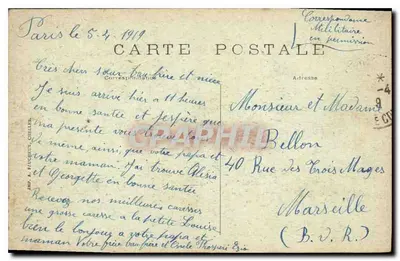 Paris le 5-4-1919
Correspondance
Militaire
en permission
CARTE POSTALE
Correspondance
Adresse
Très chers sœur, bau frère et niece
Je suis arrive hier a 11 heures
en bonne santée et j'espère que
ma presente vous
de meme, ainsi que votre papa et
votre maman. J'ai trouve Alexis
et Georgette en bonne santée
Recevez nos meilleures caresses
une grosse caresse a la petite Louise
bien le bonjour a votre papa et
maman Votre frère bau frère et Oncle
Monsieur et Madame
Bellon
40 Rue des Trois Mages
Marseille
(B. D. R.)
CPARAMA